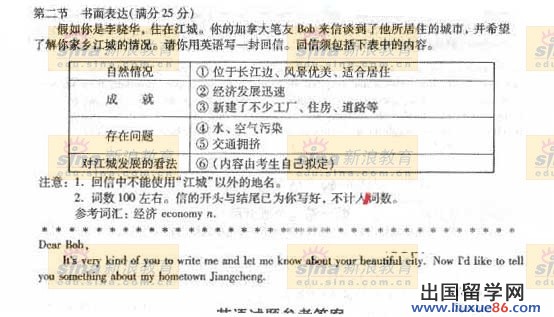 第二节 书面表达(满分25分)
假如你是李晓华,住在江城。你的加拿大笔友Bob来信谈到了他所居住的城市,并希望
了解你家乡江城的情况。请你用英语写一封回信。回信须包括下表中的内容。
自然情况 ① 位于长江边、风景优美、适合居住
成 就 ② 经济发展迅速
③ 新建了不少工厂、住房、道路等
存在问题 ④ 水、空气污染
⑤ 交通拥挤
对江城发展的看法 ⑥ (内容由考生自己拟定)
注意:1. 回信中不能使用“江城”以外的地名。
2. 词数100左右。信的开头与结尾已为你写好,不计入词数。
参考词汇:经济 economy n.
Dear Bob,
It's very kind of you to write me and let me know about your beautiful city. Now I'd like to tell
you something about my hometown Jiangcheng.
英语试题参考答案
sina 新浪教育
出国留学网
www.liuxue86.com